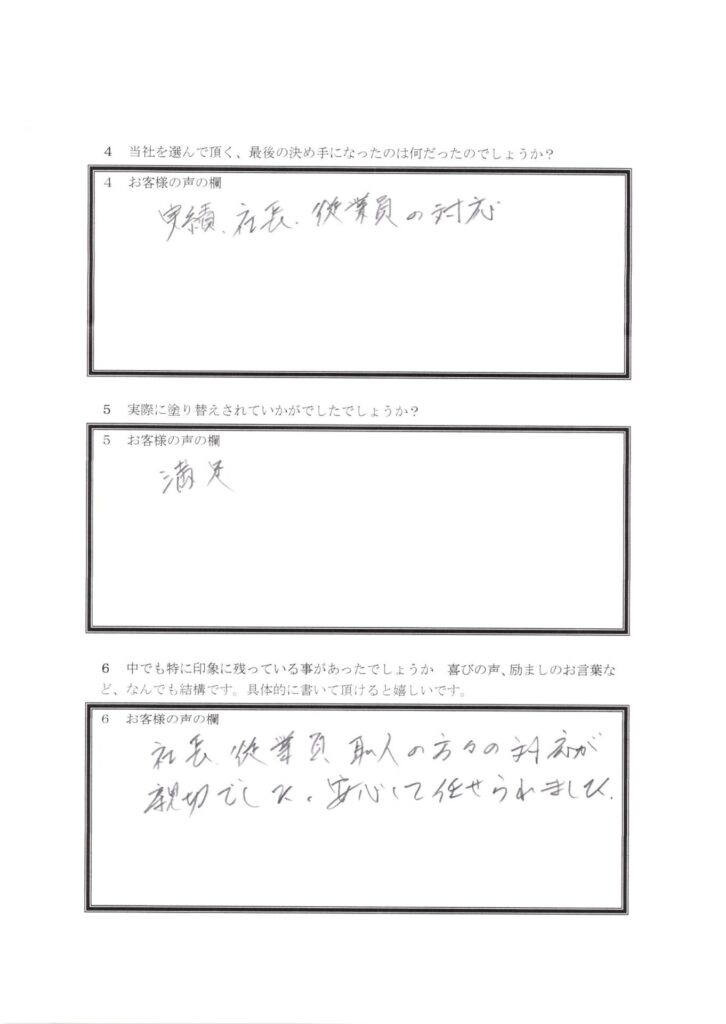 4 当社を選んで頂く、最後の決め手になったのは何だったのでしょうか？
4 お客様の声の欄
実績、社長、従業員の対応
5 実際に塗り替えされていかがでしたでしょうか？
5 お客様の声の欄
満足
6 中でも特に印象に残っている事があったでしょうか 喜びの声、励ましのお言葉な
ど、なんでも結構です。具体的に書いて頂けると嬉しいです。
6 お客様の声の欄
社長、従業員、職人の方々の対応が
親切でした。安心して任せられました。